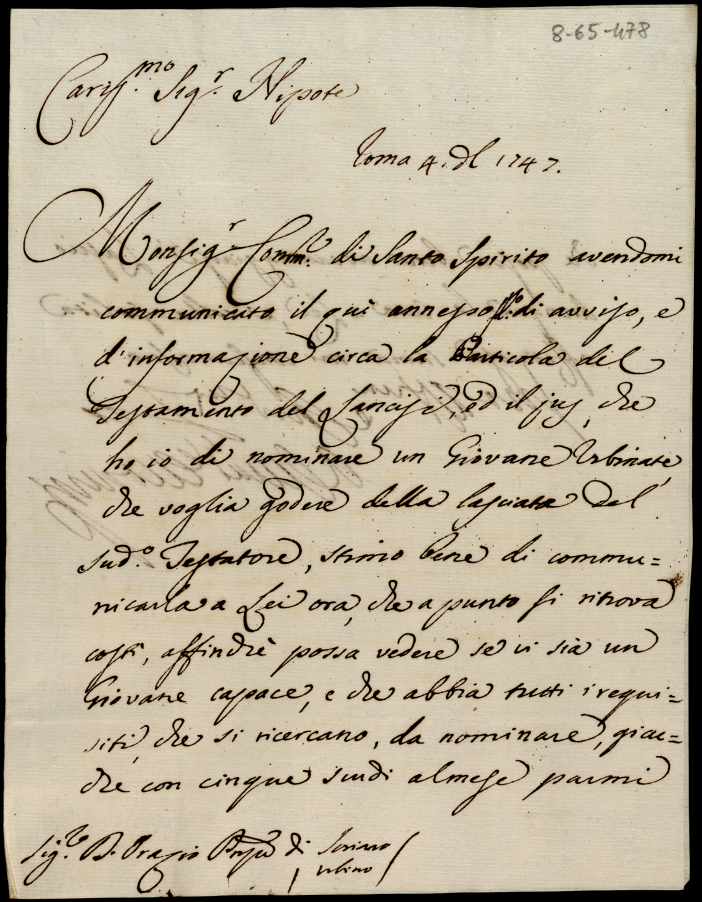 8-65-478
Cariss.mo Sig.r Nipote
Roma 4. 1747.
Monsig.r Comm.re di Santo Spirito avendomi
communicato il quì annesso di avviso, e
d'informazione circa la Particola del
Testamento del Lancisi, ed il jus, che
ho io di nominare un Giovane Urbinate,
che voglia godere della lasciata del
sud.o Testatore, stimo bene di commu=
nicarla a Lei ora, che a punto si ritrova
costì, affinchè possa vedere se vi sia un
Giovane capace, e che abbia tutti i requi=
siti, che si ricercano, da nominare, giac=
chè con cinque scudi al mese parmi
Sig.re D. Orazio di Soriano
Urbino